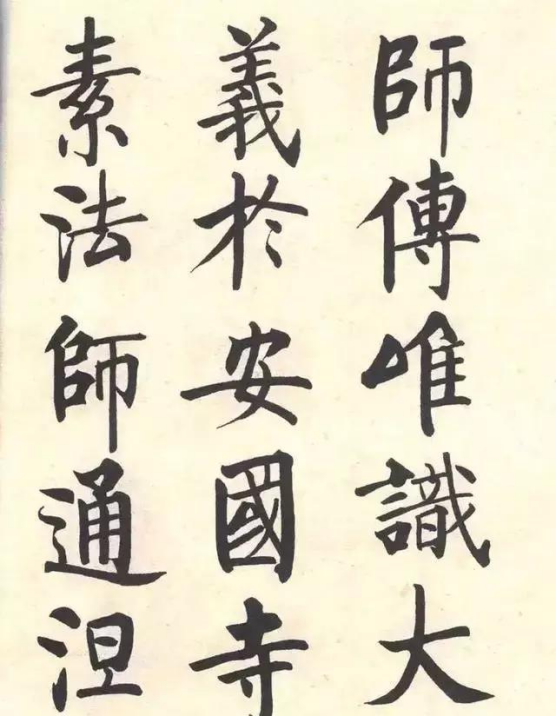 師傅唯識大
義於安國寺
素法師通涅